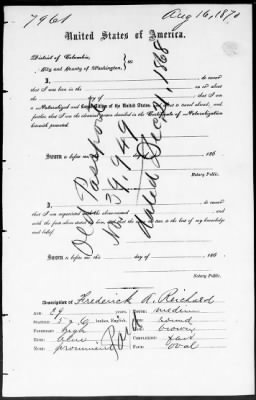 7961
Aug 16, 1870
United States of America.
District of Columbia,
City and County of Washington, } ss
I, do swear
that I was born in the on the
day of that I am
a Naturalized and Citizen of the United States,
further, that I am the described in the Certificate of Naturalization
herewith presented.
Sworn to before me this day of 186
Notary Public.
Old Passport
No. 39,949
Dated Dec 21, 1868
I, do swear
that I am acquainted with the above-named
and with the facts above stated by him, and that the same are true to the best of my knowledge
and belief.
Sworn to before me this day of 186
Notary Public.
Description of Frederick A. Reichard
Age: years, Mouth: medium
Stature: 5 " 6 inches, English, Chin: round
Forehead: high Hair: brown
Eyes: blue Complexion: fair
Nose: prominent Face: oval
Paid